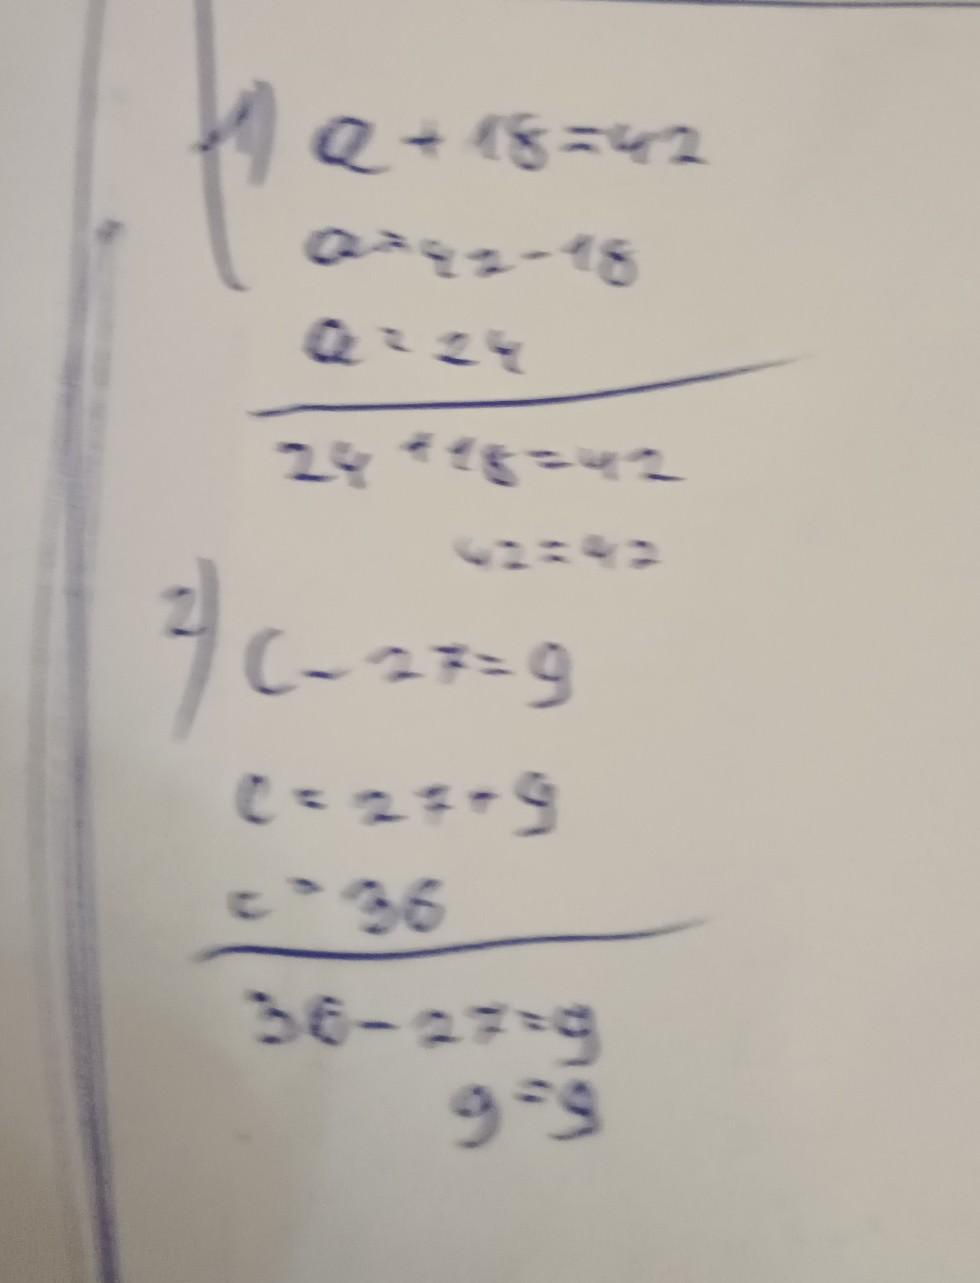 1) a + 18 = 42
a = 42 - 18
a = 24
24 + 18 = 42
42 = 42
2) c - 27 = 9
c = 27 + 9
c = 36
36 - 27 = 9
9 = 9